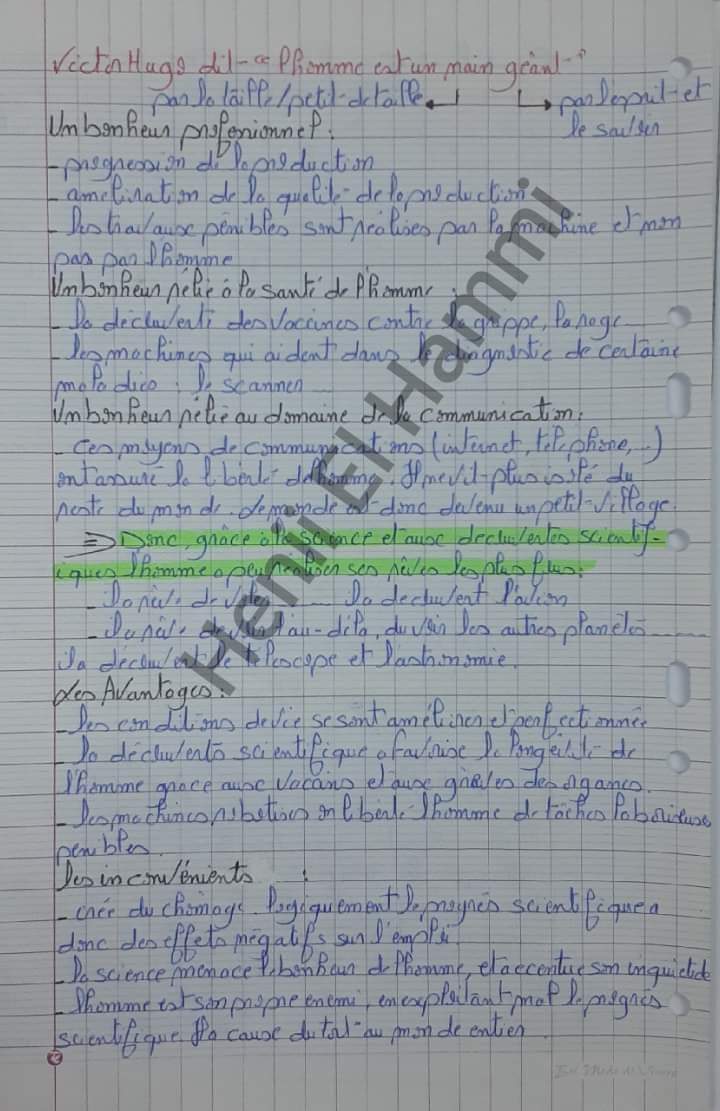 Victor Hugo dit « l'homme est un nain géant »
par la taille / petit de taille par l'esprit et
le savoir
Un bonheur professionnel :
- progression de la production
- amélioration de la qualité de la production
- les travaux pénibles sont réalisés par la machine et non
pas par l'homme
Un bonheur rélié à la santé de l'homme :
- la découverte des vaccins contre la grippe, la rage
- les machines qui aident dans le diagnostic de certaine
maladies : le scanner
Un bonheur rélié au domaine de la communication :
- ces moyens de communications (internet, téléphone, ...)
ont assuré la liberté de l'homme. Il ne vit plus isolé du
reste du monde. Le monde est donc devenu un petit village.
⇒ Donc, grâce à la science et aux découvertes scientif-
iques l'homme a pu réaliser ses rêves les plus fous.
- la rêve de voler ........ la découvert l'avion
- la rêve de voir l'au-délà, du voir les autres planètes ........
la découvert le téléscope et l'astronomie.
Les Avantages :
- les conditions de vie se sont améliorer et perfectionnée
- la découverte scientifique a favorisé la longévité de
l'homme grace aux vaccins et aux greffes des organes.
- les machines robotisés on libéré l'homme de tâches laborieuses
penibles.
Les inconvénients :
- crée du chômage. logiquement le progrès scientifique a
donc des effets négatifs sur l'emploi
- la science menace le bonheur de l'homme, et accentue son inquietude
- l'homme est son propre enemi, en exploitant mal le progrès
scientifique. Il a cause du tort au monde entier
Henii El Hammi